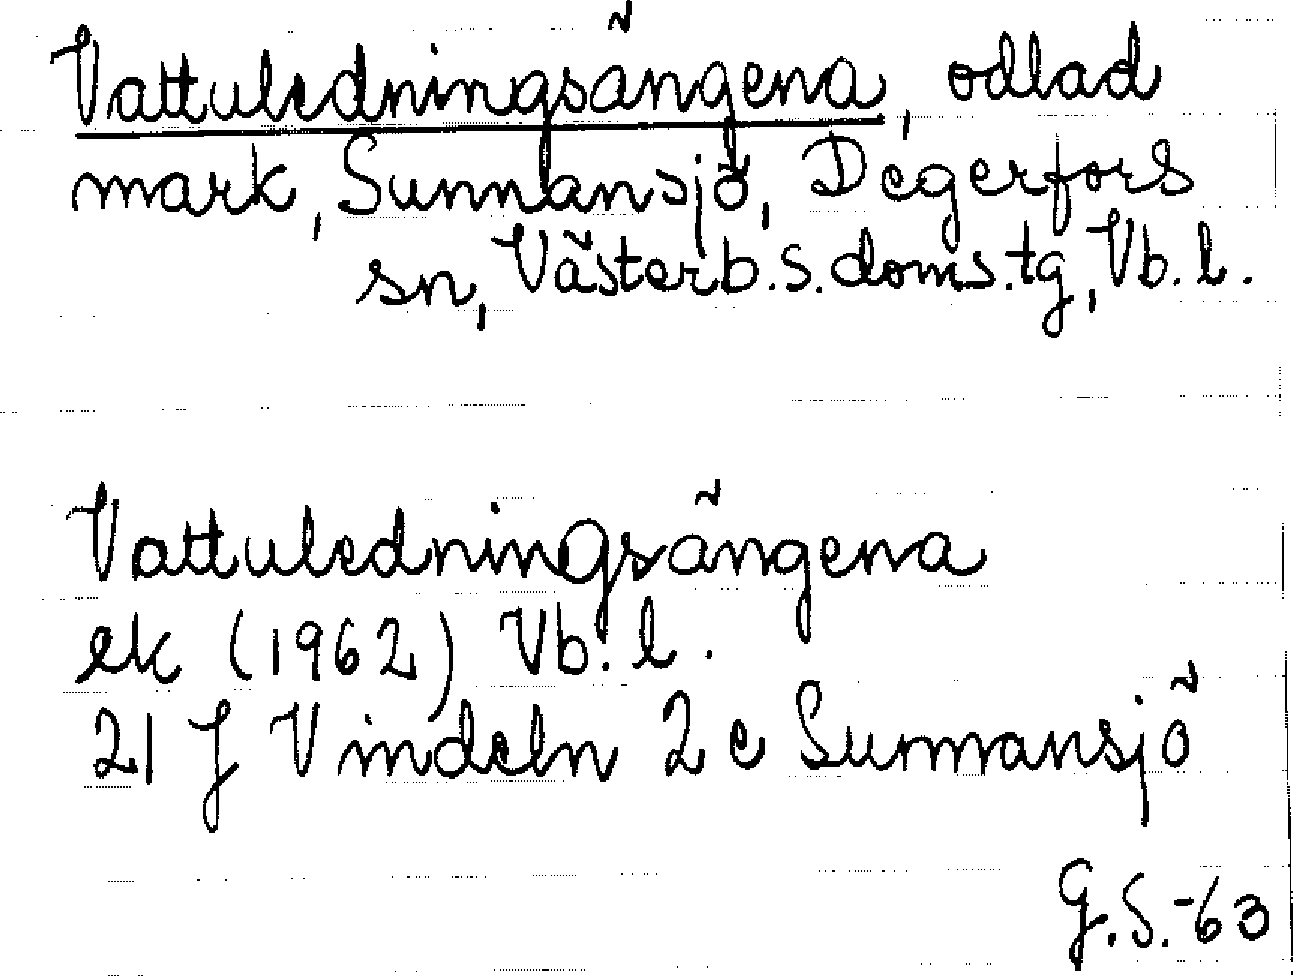 Vattuledningsängena, odlad
mark, Sunnansjö, Degerfors
sn, Västerb.s.doms.tg, Vb. l.
Vattuledningsängena
ek (1962) Vb. l.
21 J Vindeln 2 e Sunnansjö
G.S.-63